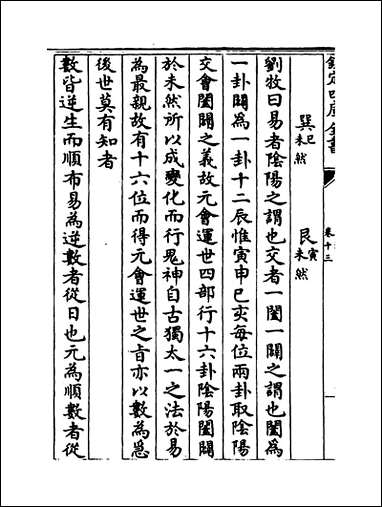 欽定四庫全書
卷十三
巽巳未然 艮寅未然
劉牧曰易者陰陽之謂也交者一闔一闢之謂也闔為
一卦闢為一卦十二辰惟寅申巳亥每位兩卦取陰陽
交會闔闢之義故元會運世四部行十六卦陰陽闔闢
於未然所以成變化而行鬼神自古獨太一之法於易
為最親故有十六位而得元會運世之旨亦以數為忌
後世莫有知者
數皆逆生而順布易為逆數者從日也元為順數者從